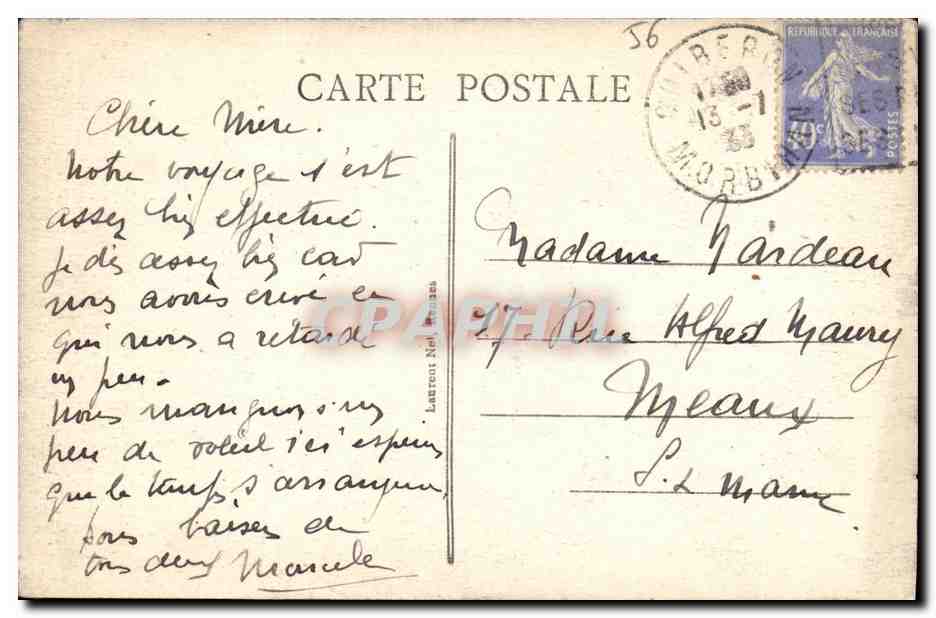 56
CARTE POSTALE
QUIBERON
13 -7
33
MORBIHAN
REPUBLIQUE FRANÇAISE
40c
POSTES
Chère Mère.
Notre voyage s'est
assez bien effectué.
Je dis assez bien car
nous avons crevé ce
qui nous a retardé
un peu.
Nous manquons un
peu de soleil ici espérons
que le temps s'arrangera.
bons baisers de
tous deux Marcelle
Laurent Nel Rennes
CPARHII
Madame Nardeau
17 Rue Alfred Maury
Meaux
S. & Marne